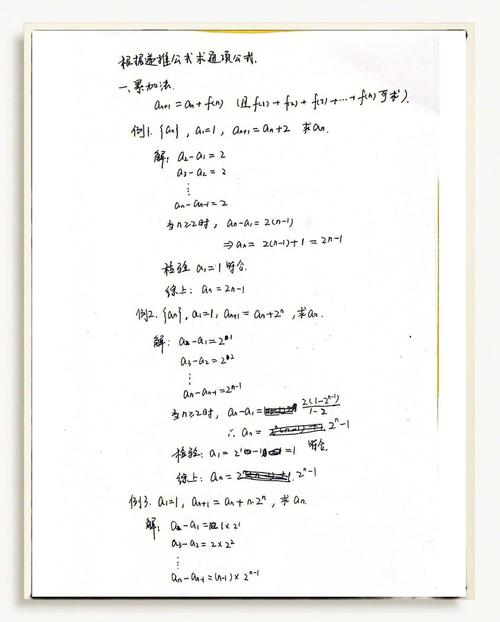 根据递推公式求通项公式.
一、累加法.
aₙ₊₁ = aₙ + f(n) (且 f(1) + f(2) + f(3) + … + f(n) 可求).
例1. {aₙ}, a₁=1, aₙ₊₁ = aₙ+2 求aₙ.
解: a₂-a₁ = 2
a₃-a₂ = 2
⋮
aₙ-aₙ₋₁ = 2
当n≥2时, aₙ-a₁ = 2(n-1)
⇒ aₙ = 2(n-1)+1 = 2n-1
检验 a₁=1 符合.
综上: aₙ = 2n-1
例2. {aₙ}, a₁=1, aₙ₊₁ = aₙ+2ⁿ, 求aₙ.
解: a₂-a₁ = 2¹
a₃-a₂ = 2²
⋮
aₙ-aₙ₋₁ = 2ⁿ⁻¹
当n≥2时, aₙ-a₁ = 2(1-2ⁿ⁻¹)/(1-2)
∴ aₙ = 2ⁿ-1
检验: a₁ = 2¹-1 = 1 符合.
综上: aₙ = 2ⁿ-1
例3. a₁=1, aₙ₊₁ = aₙ + n·2ⁿ, 求aₙ.
解: a₂-a₁ = 1×2¹
a₃-a₂ = 2×2²
⋮
aₙ-aₙ₋₁ = (n-1)×2ⁿ⁻¹